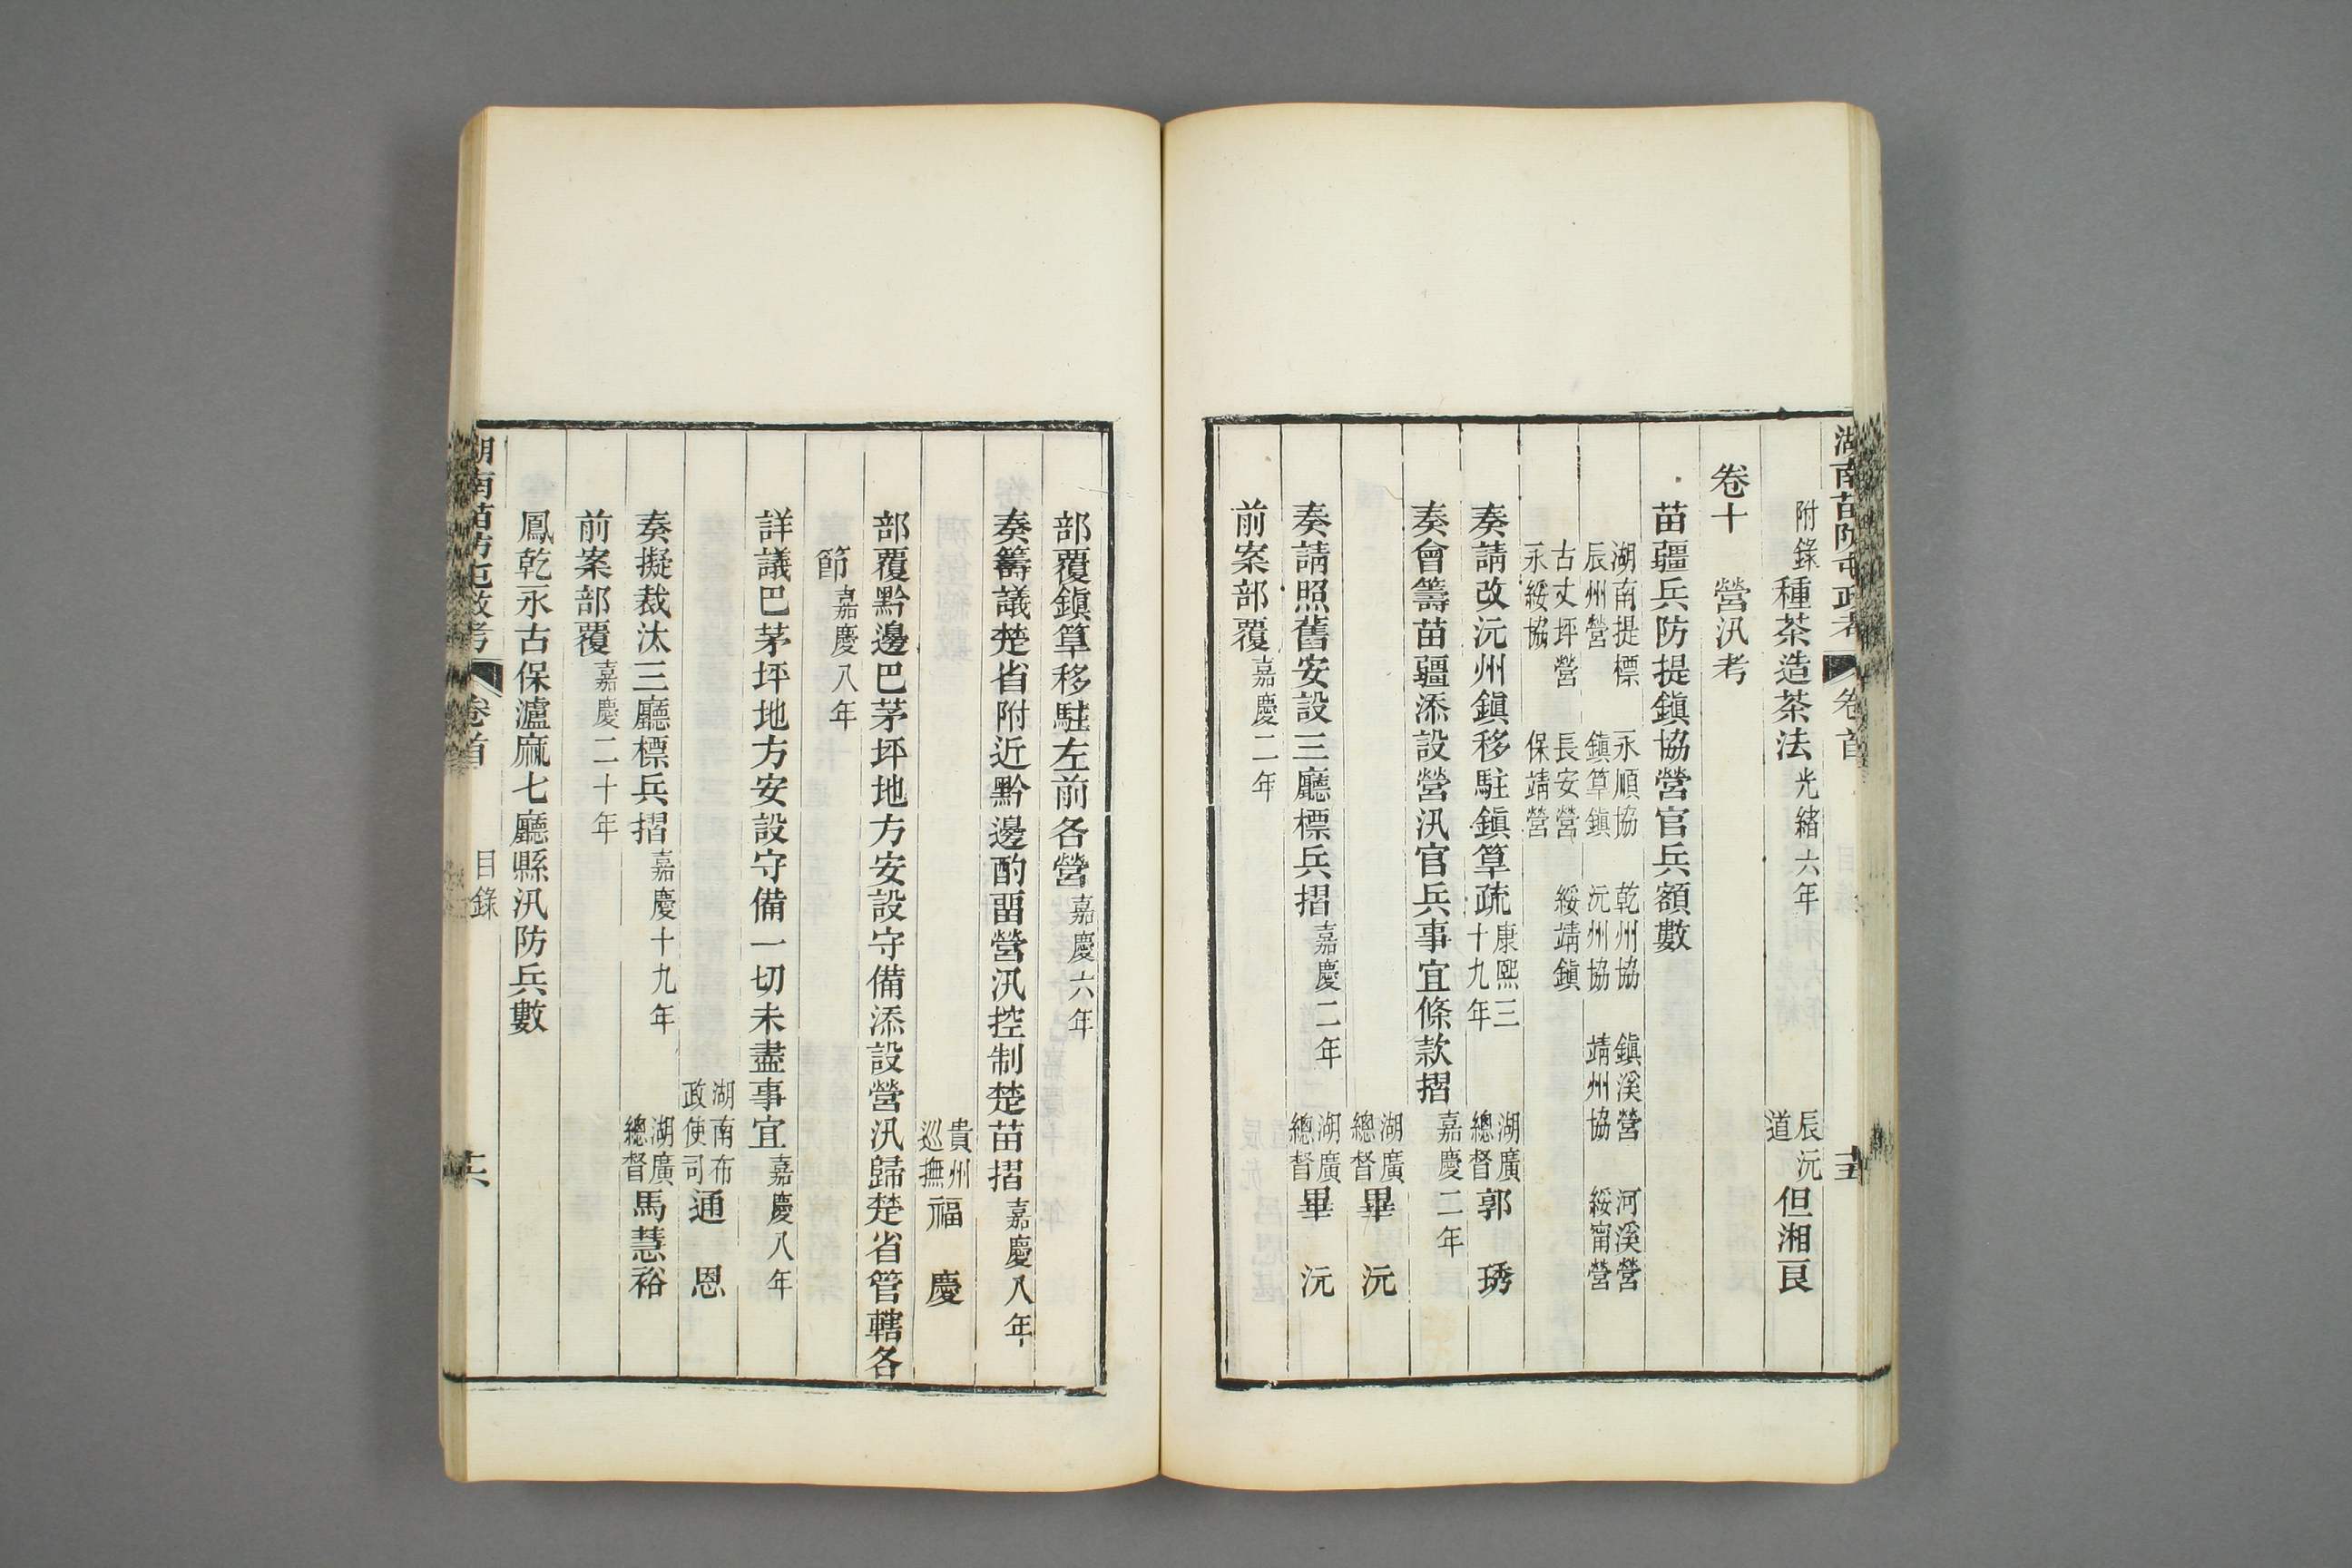 湖南苗防屯政考 卷首 十五
附錄種茶造茶法光緒六年 辰沅道但湘良
卷十 營汛考
苗疆兵防提鎮協營官兵額數
湖南提標 永順協 乾州協 鎮溪營 河溪營
辰州營 鎮筸鎮 沅州協 靖州協 綏甯營
古丈坪營 長安營 綏靖鎮
永綏協 保靖營
奏請改沅州鎮移駐鎮筸疏康熙三十九年 湖廣總督郭琇
奏會籌苗疆添設營汛官兵事宜條款摺嘉慶二年
湖廣總督畢沅
奏請照舊安設三廳標兵摺嘉慶二年 湖廣總督畢沅
前案部覆嘉慶二年
部覆鎮筸移駐左前各營嘉慶六年
奏籌議楚省附近黔邊酌畱營汛控制楚苗摺嘉慶八年
貴州巡撫福慶
部覆黔邊巴茅坪地方安設守備添設營汛歸楚省管轄各
節嘉慶八年
詳議巴茅坪地方安設守備一切未盡事宜嘉慶八年
湖南布政使司通恩
奏擬裁汰三廳標兵摺嘉慶十九年 湖廣總督馬慧裕
前案部覆嘉慶二十年
鳳乾永古保瀘麻七廳縣汛防兵數
湖南苗防屯政考 卷首 目錄 十六